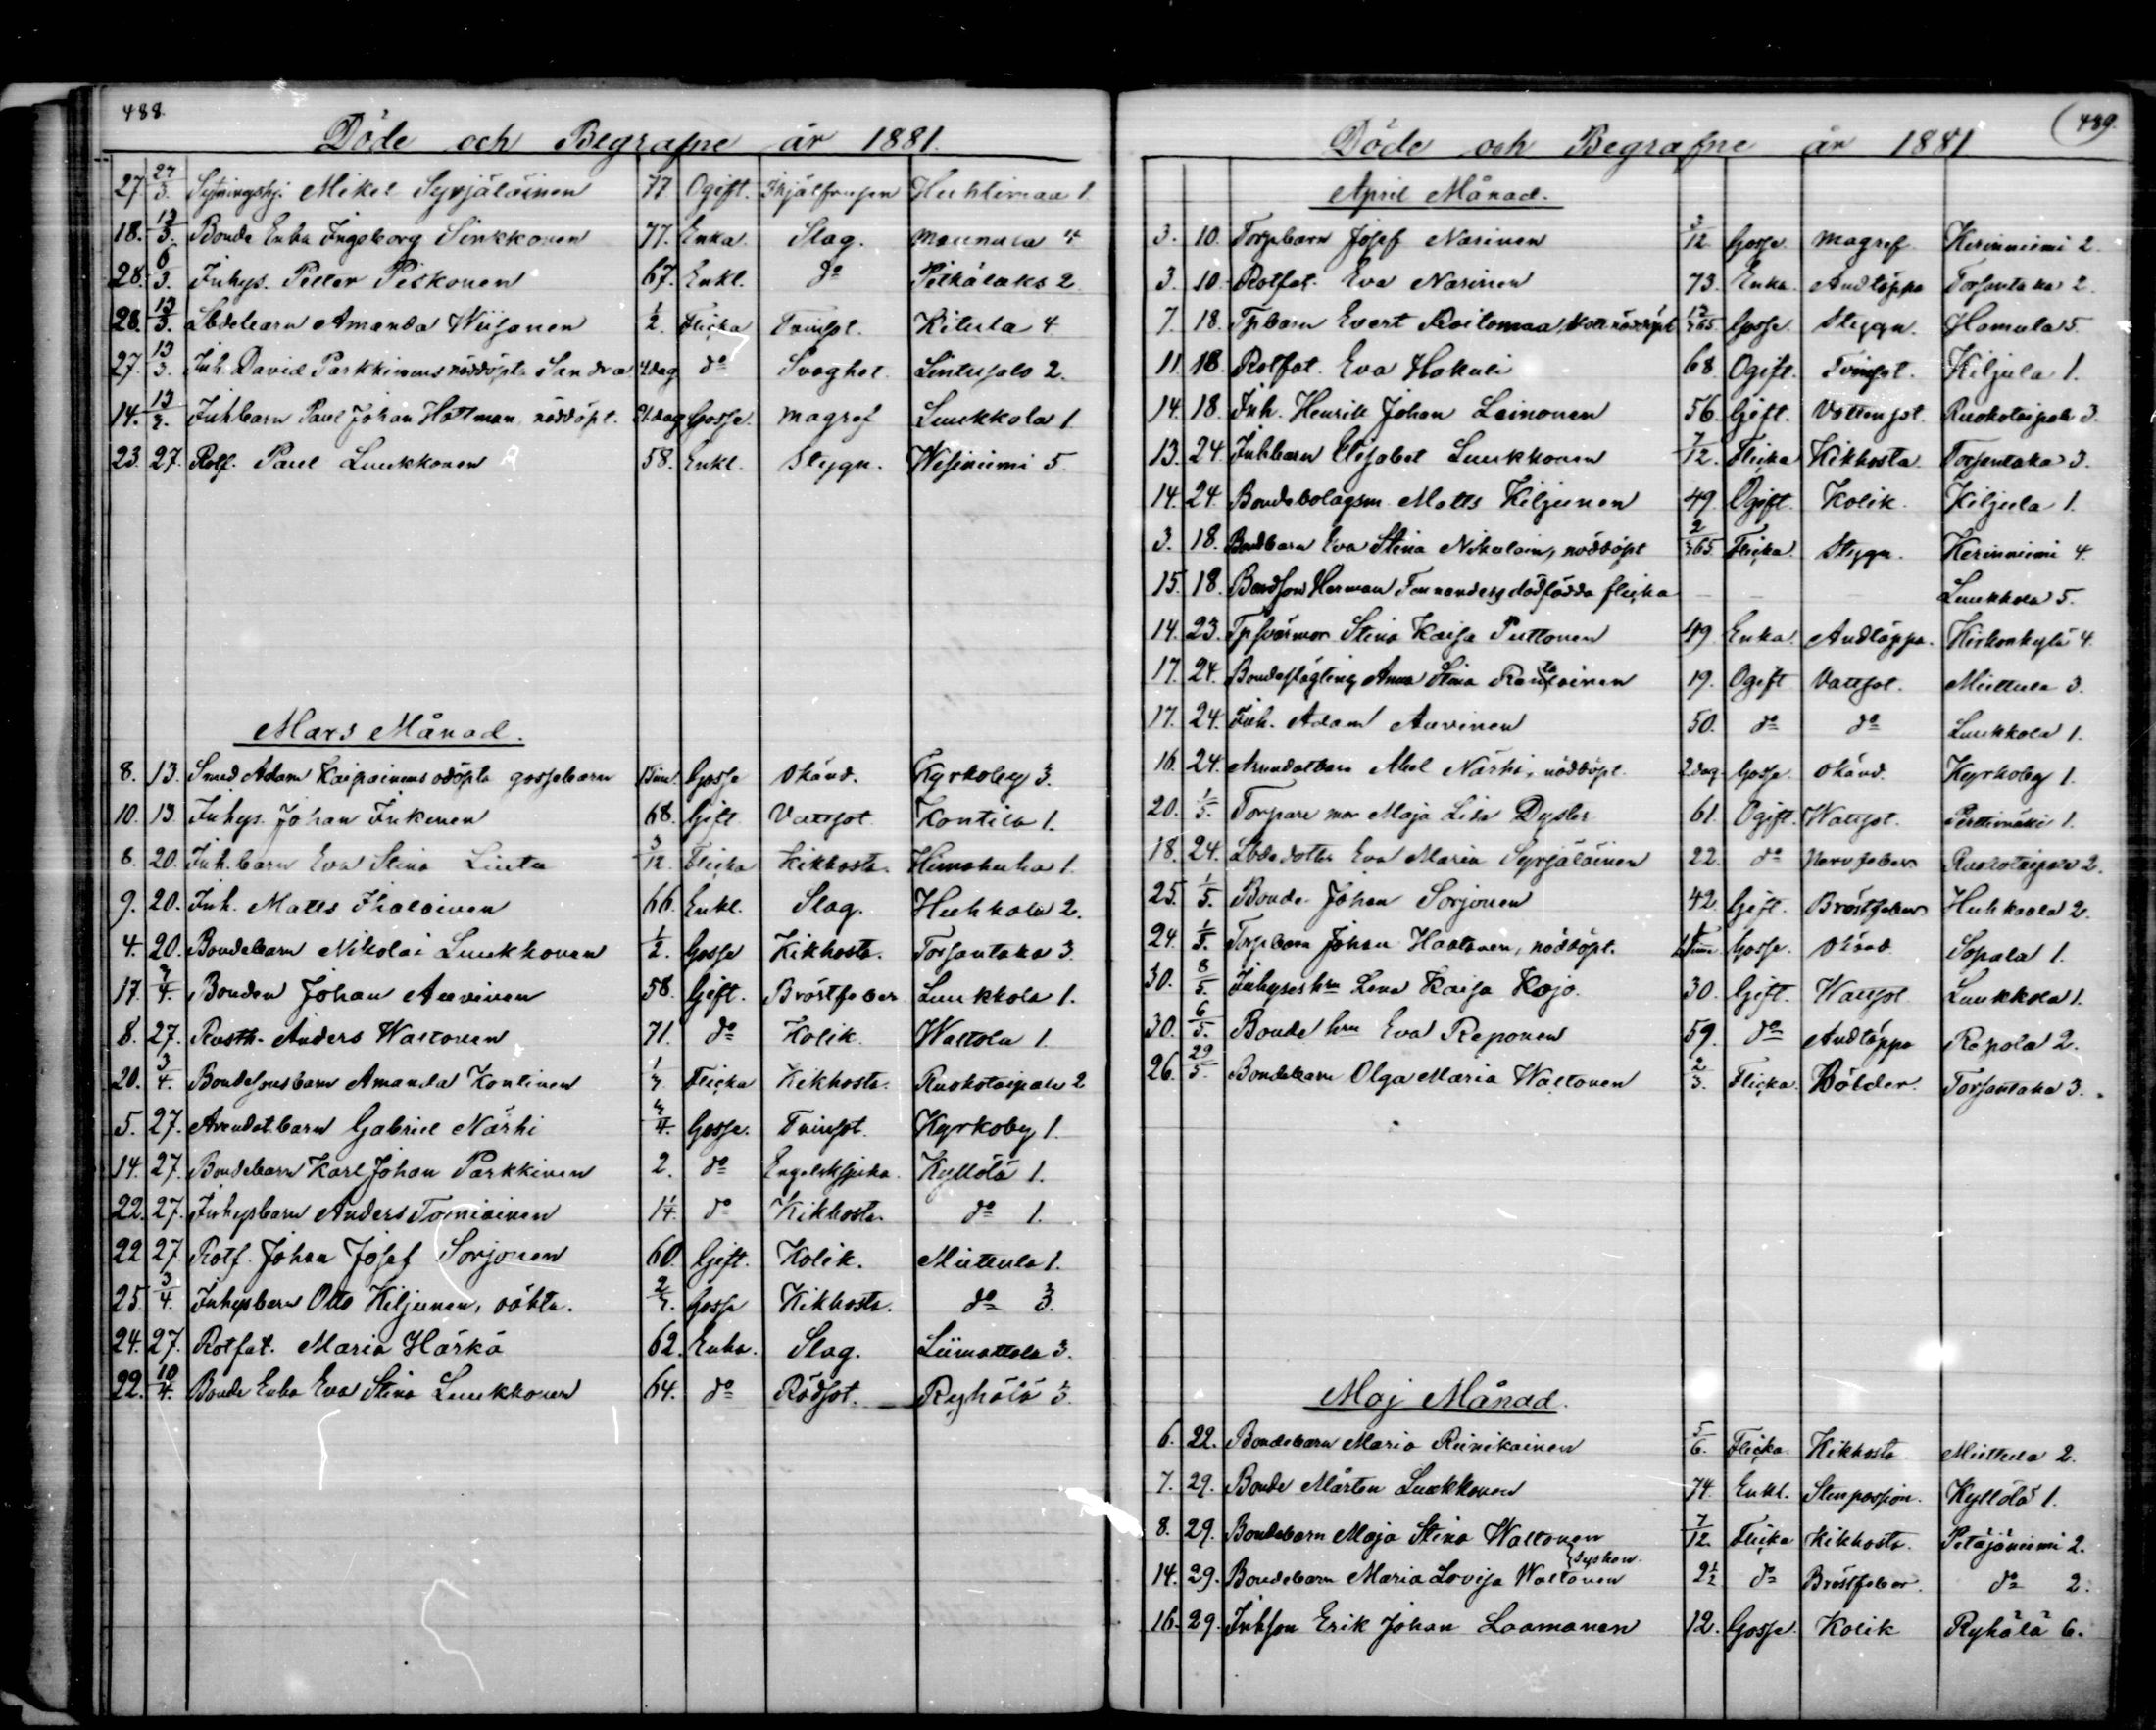 488.
Döde och Begrafne år 1881.
27. 27/3. Mikel Syrjäläinen 77. Ogift. Huhtimaa 1.
18. 13/3. Bonde Enka Ingeborg Sinkkonen 77. Enka. Slag. 4
28. 6/3. Inhys. Petter Piskonen 67. Enkl. do Pitkälaks 2
28. 13/3. Lbdebarn Amanda Wiisanen 1/2. Flicka Tvinsot. Kitula 4.
27. 13/3. Inh. David Parkkinens nöddöpta Sandra 4 dag do Svaghet. Lintusalo 2.
14. 13/3. Inhbarn Paul Johan Hottman, nöddöpt. 21 dag Gosse. Magref Luukkola 1
23. 27. Rotf. Paul Luukkonen 58. Enkl. Stygn. Wesiniemi 5.
Mars Månad.
8. 13. Smed Adam Kaipainens odöpta gossebarn Gosse Okänd. Kyrkoby 3.
10. 13. Inhys. Johan Inkinen 68. Gift. Vattsot Kontila 1.
8. 20. Inh. barn Eva Stina Liuta 3/12. Flicka Kikhosta. Himohuha 1.
9. 20. Inh. Matts Ihalainen 66. Enkl. Slag. Huhkola 2.
4. 20. Bondebarn Nikolai Luukkonen 1/2. Gosse Kikhosta. Torsantaka 3.
17. 3/4. Bonden Johan Auvinen 58. Gift. Bröstfeber Luukkola 1.
8. 27. Rusth. Anders Waltonen 71. do Kolik. Waltola 1.
20. 3/4. Bondesonsbarn Amanda Kontinen Flicka Kikhosta. Ruokotaipale 2
5. 27. Arendat.barn Gabriel Närhi Gosse. Tvinsot. Kyrkoby 1.
14. 27. Bondebarn Karl Johan Parkkinen 2. do Engelsksjuka. Kyllölä 1.
22. 27. Inhysbarn Anders Torniainen do Kikhosta. do 1.
22 27. Rotf. Johan Josef Sorjonen 60. Gift. Kolik. Miettula 1.
25. 3/4. Inhysbarn Otto Kiljunen, oäkta. Gosse Kikhosta. do 3.
24. 27. Rotfat. Maria Härkä 62. Enka. Slag. Liimattala 3.
22. 10/4. Bonde Enka Eva Stina Luukkonen 64. do Rödsot. Ryhälä 3.
489.
Döde och Begrafne år 1881
April Månad.
3. 10. Torpbarn Josef Närinen 3/12 Gosse Magref Kerinniemi 2.
3. 10. Rotfat. Eva Närinen 73. Enka. Andtäppa Torsantaka 2.
7. 18. Tpbarn Evert Gosse Stygn. Hamula 5.
11. 18. Rotfat. Eva Hakuli 68. Ogift. Tvinsot. Kiljula 1.
14. 18. Inh. Henrik Johan Leinonen 56. Gift. Vattensot. Ruokotaipale 3.
13. 24. Inhbarn Elisabet Luukkonen 7/12. Flicka Kikhosta. Torsantaka 3.
14. 24. Bondebolagsm. Matts Kiljunen 49. Ogift. Kolik. Kiljula 1.
3. 18. Bondbarn Eva Stina Nikulain, nöddöpt 2/365 Flicka. Stygn. Kerinniemi 4.
15. 18. Bondson Herman dödfödda flicka Luukkola 5.
14. 23. Tpsvärmor Stina Kaisa Puttonen 49. Enka. Andtäppa. Kirkonkylä 4.
17. 24. Bondeflägling Anna Stina Rautiainen 19. Ogift Vattsot. Miettula 3.
17. 24. Inh. Adam Auvinen 50. do do Luukkola 1.
16. 24. Arendatbarn Abel Närhi, nöddöpt. 2 dag. Gosse. Okänd. Kyrkoby 1.
20. 1/5. Torpare mor Maja Lisa Dyster 61. Ogift. Wattsot. Perttimäki 1.
18. 24. Lbdedotter Eva Maria Syrjäläinen 22. do Nervfeber Ruokotaipale 2.
25. 1/5. Bonde Johan Sorjonen 42. Gift. Bröstfeber Huhkola 2.
24. 1/5. Torpbarn Johan Haatanen, nöddöpt. Gosse. Okänd Sopala 1.
30. 8/5. Inhyses hru Lena Kaisa Kojo. 30. Gift. Wattsot Luukkola 1.
30. 6/5. Bonde hru Eva Reponen 59. do Andtäppa Repola 2.
26. 29/5. Bondebarn Olga Maria Waltonen 2/3. Flicka. Bölder. Torsantaka 3.
Maj Månad.
6. 22. Bondebarn Maria Riinikainen 5/6. Flicka. Kikhosta Miettula 2.
7. 29. Bonde Mårten Luukkonen 74. Enkl. Stenpassion. Kyllölä 1.
8. 29. Bondebarn Maja Stina Waltonen 7/12. Flicka Kikhosta. Petäjäniemi 2.
syskon.
14. 29. Bondebarn Maria Lovisa Waltonen 2 1/2 do Bröstfeber do 2.
16. 29. Inhson Erik Johan Laamanen 12. Gosse. Kolik Ryhälä 6.